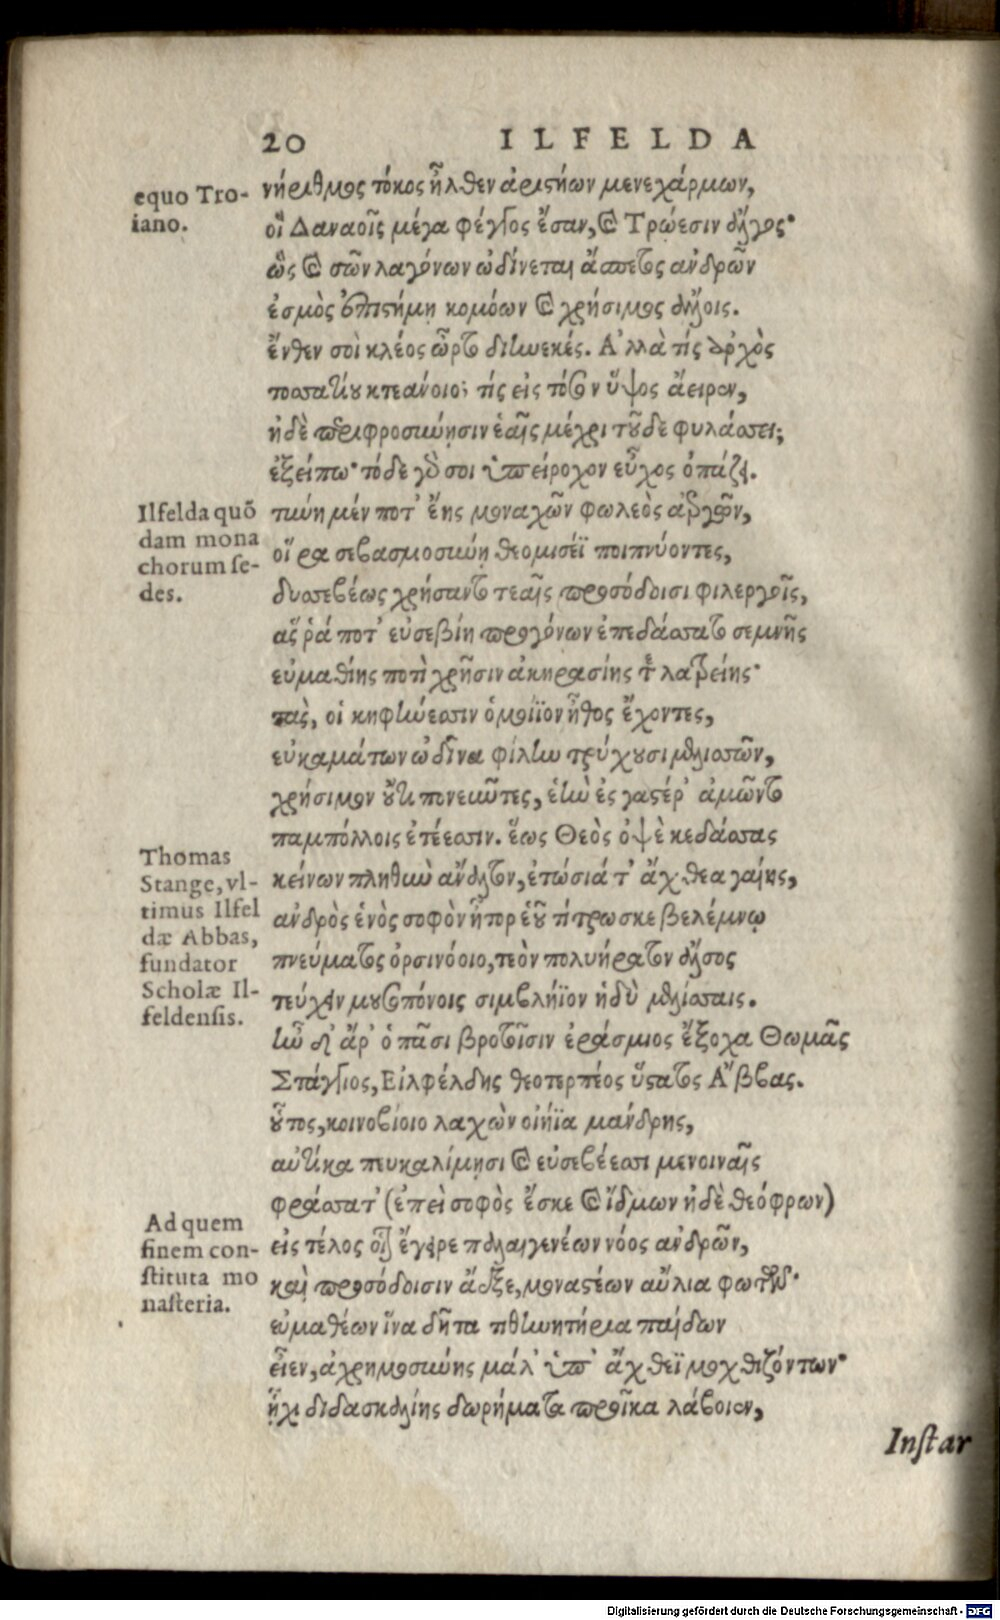 20 ILFELDA
equo Tro-
iano.
νήριθμος τόκος ἦλθεν ἀριστήων μενεχάρμων,
οἳ Δαναοῖς μέγα φέγγος ἔσαν, καὶ Τρώεσιν ἄλγος·
ὣς καὶ σῶν λαγόνων ὠδίνεται ἄσπετος ἀνδρῶν
ἑσμὸς ἐπιστήμῃ κομόων καὶ χρήσιμος ἄλλοις.
ἔνθεν σοὶ κλέος ὦρτο διηνεκές. Ἀλλὰ τίς ἀρχὸς
τοσσατίου κτεάνοιο; τίς εἰς τόσον ὕψος ἄειρεν,
ἠδὲ περιφροσύνῃσιν ἑαῖς μέχρι τοῦδε φυλάσσει;
ἐξείπω· τόδε γάρ σοι ὑπείροχον εὖχος ὀπάζει.
Ilfelda quō
dam mona
chorum se-
des.
τύνη μέν ποτ' ἔης μοναχῶν φωλεὸς ἀεργῶν,
οἵ ρα σεβασμοσύνῃ θεομισέϊ ποιπνύοντες,
δυσσεβέως χρήσαντο τεαῖς προσόδοισι φιλεργοῖς,
ἅς ῥά ποτ' εὐσεβίη προγόνων ἐπεδάσσατο σεμνῆς
εὐμαθίης ποτὶ χρῆσιν ἀκηρασίης τε λατρείης·
τὰς, οἱ κηφήνεσσιν ὁμοίϊον ἦθος ἔχοντες,
εὐκαμάτων ὠδῖνα φίλην τρύχουσι μελισσῶν,
χρήσιμον οὔτι πονεῦντες, ἑὴν ἐς γαστέρ' ἀμῶντο
παμπόλλοις ἐτέεσσιν. ἕως Θεὸς ὀψὲ κεδάσσας
Thomas
Stange, vl-
timus Ilfel
dæ Abbas,
fundator
Scholæ Il-
feldensis.
κείνων πληθὺν ἄνδιτον, ἐτώσιά τ' ἄχθεα γαίης,
ἀνδρὸς ἑνὸς σοφὸν ἦτορ ἑοῦ τίτρωσκε βελέμνῳ
πνεύματος ὀρσινόοιο, τεὸν πολυήρατον ἄλσος
τεύχειν μουσοπόνοις σιμβλήϊον ἡδὺ μελίσσαις.
ἦν δ' ἄρ' ὁ πᾶσι βροτοῖσιν ἐράσμιος ἔξοχα Θωμᾶς
Στάγγιος, Εἰλφέλδης θεοτερπέος ὕστατος Ἄββας.
οὗτος, κοινοβίοιο λαχὼν οἰήϊα μάνδρης,
αὐτίκα πευκαλίμῃσι καὶ εὐσεβέεσσι μενοιναῖς
φράσσατ' (ἐπεὶ σοφὸς ἔσκε καὶ ἴδμων ἠδὲ θεόφρων)
Ad quem
finem con-
stituta mo
nasteria.
εἰς τέλος οἷον ἔγειρε παλαιγενέων νόος ἀνδρῶν,
καὶ προσόδοισιν ἄεξε, μοναστέων αὔλια φωτῶν·
εὐμαθέων ἵνα δῆτα τιθηνητήρια παίδων
εἶεν, ἀχρημοσύνης μάλ' ὑπ' ἄχθεϊ μοχθιζόντων·
ᾗχι διδασκαλίης δωρήματα προῖκα λάβοιεν,
Instar
Digitalisierung gefördert durch die Deutsche Forschungsgemeinschaft - DFG